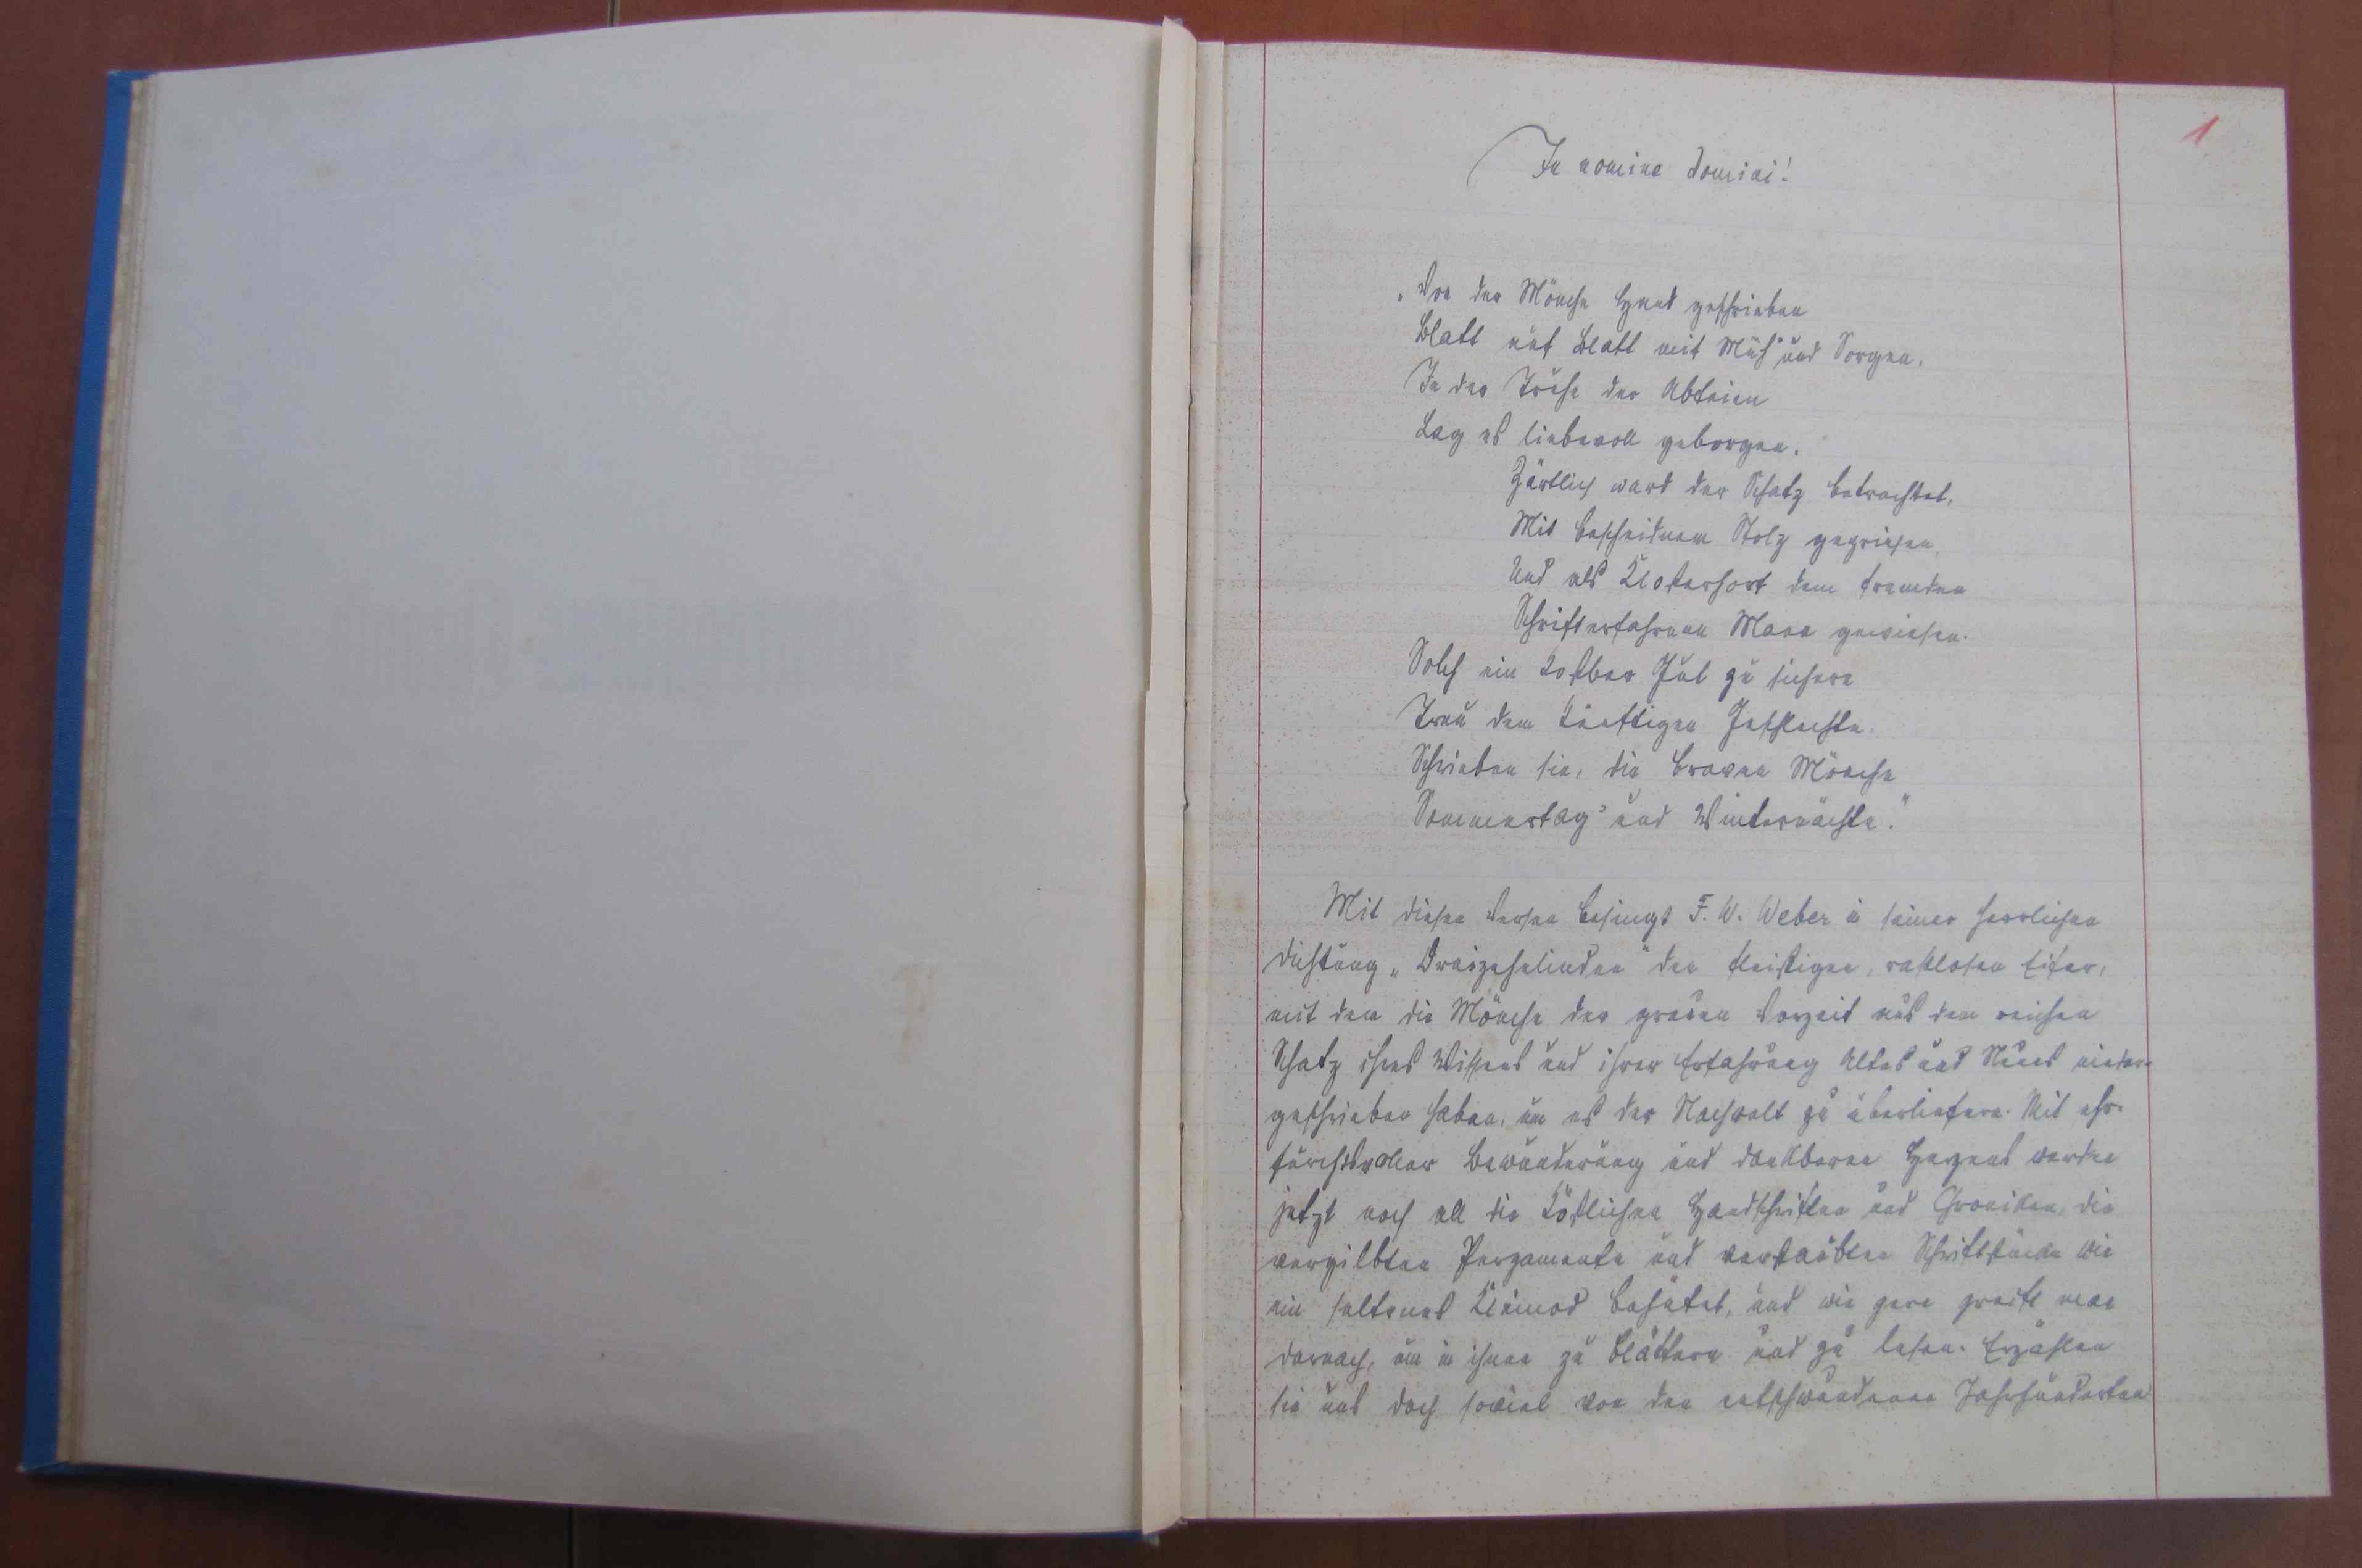 1
In nomine Domini!
„Von der Mönche Hand geschrieben
Blatt auf Blatt mit Müh' und Sorgen,
In der Truhe der Abteien
Lag es liebevoll geborgen.
Zärtlich ward der Schatz betrachtet,
Mit bescheidnem Stolz gepriesen
Und als Klosterhort dem fremden
Schrifterfahrnen Mann gewiesen.
Solch ein kostbar Gut zu sichern
Treu dem künftigen Geschlechte.
Schrieben sie, die braven Mönche
Sommertag' und Winternächte."
Mit diesen Versen besingt F. W. Weber in seiner herrlichen
Dichtung „Dreizehnlinden" den fleißigen, rastlosen Eifer,
mit dem die Mönche der grauen Vorzeit aus dem reichen
Schatz ihres Wissens und ihrer Erfahrung Altes und Neues nieder-
geschrieben haben, um es der Nachwelt zu überliefern. Mit ehr-
furchtsvoller Bewunderung und dankbaren Herzens werden
jetzt noch all die köstlichen Handschriften und Chroniken, die
vergilbten Pergamente und verstaubten Schriftstücke wie
ein seltenes Kleinod behütet, und wie gern greift man
darnach, um in ihnen zu blättern und zu lesen. Erzählen
sie uns doch soviel von den entschwundenen Jahrhunderten